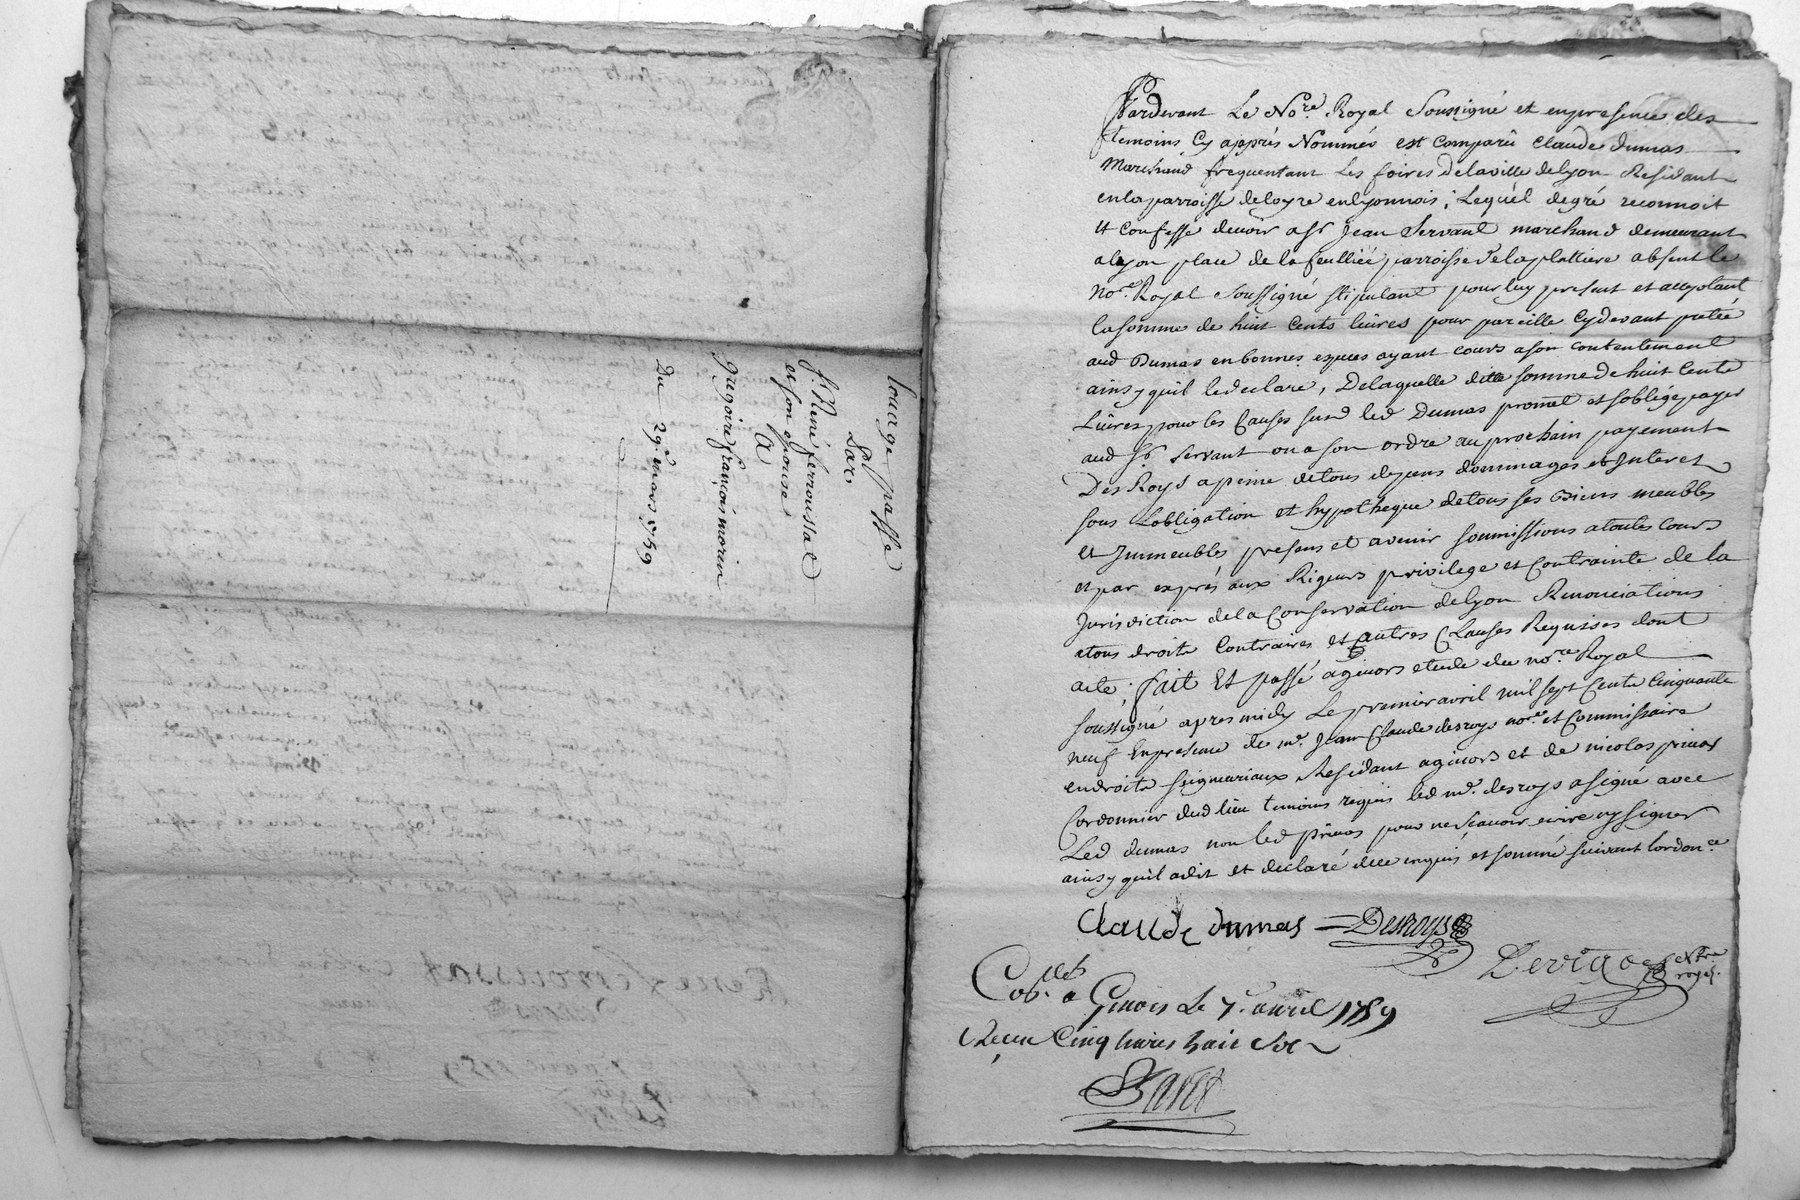 louage passé
Par
Sr. René ferroussat
et son epouse
A
gregoire françois morin
Du 29e. mars 1759
Pardevant Le Nore. Royal Soussigné et en presence des
temoins cy apprés Nommés est comparû claude dumas
Marchand frequentant Les foires de la ville de lyon Residant
en la parroisse de loyre en lyonnois; Lequel de gré reconnoit
et confesse devoir a Sr. Jean Servant marchand demeurant
a lyon place de la feuilliée parroisse de la plattiere absent le
nore. Royal Soussigné stipulant pour luy present et acceptant
la somme de huit cents livres pour pareille cydevant pretée
aud Dumas en bonnes especes ayant cours a son contentement
ainsy quil le declare, De laquelle ditte somme de huit cents
Livres pour les causes susd led Dumas promet et soblige payer
aud Sr. Servant ou a son ordre au prochain payement
Des Roys a peine de tous depens dommages et Interet
sous Lobligation et hypotheque de tous ses Biens meubles
et Immeubles presens et avenir soumissions a toutes cours
et par exprés aux Rigeurs privilege et contrainte de la
Jurisdiction de la Conservation de lyon Renonciations
a tous droits contraires et autres Clauses Requises dont
acte; fait Et passé a givors etude du nore. Royal
soussigné apres midy Le premier avril mil sept Cents Cinquante
neuf En presence de me. Jean Claude desroys nore. et Commissaire
en droits seigneuriaux Residant a givors et de nicolas privas
Cordonnier dud lieu temoins requis led me. desroys a signé avec
Led dumas non led privas pour ne scavoir ecrire ny signer
ainsy quil a dit et declaré de ce enquis et sommé suivant lordonce.
Claude dumas Desroys
Devigo
nre royal.
Collé a Givors Le 7e. avril 1759
Receu Cinq livres huit sols